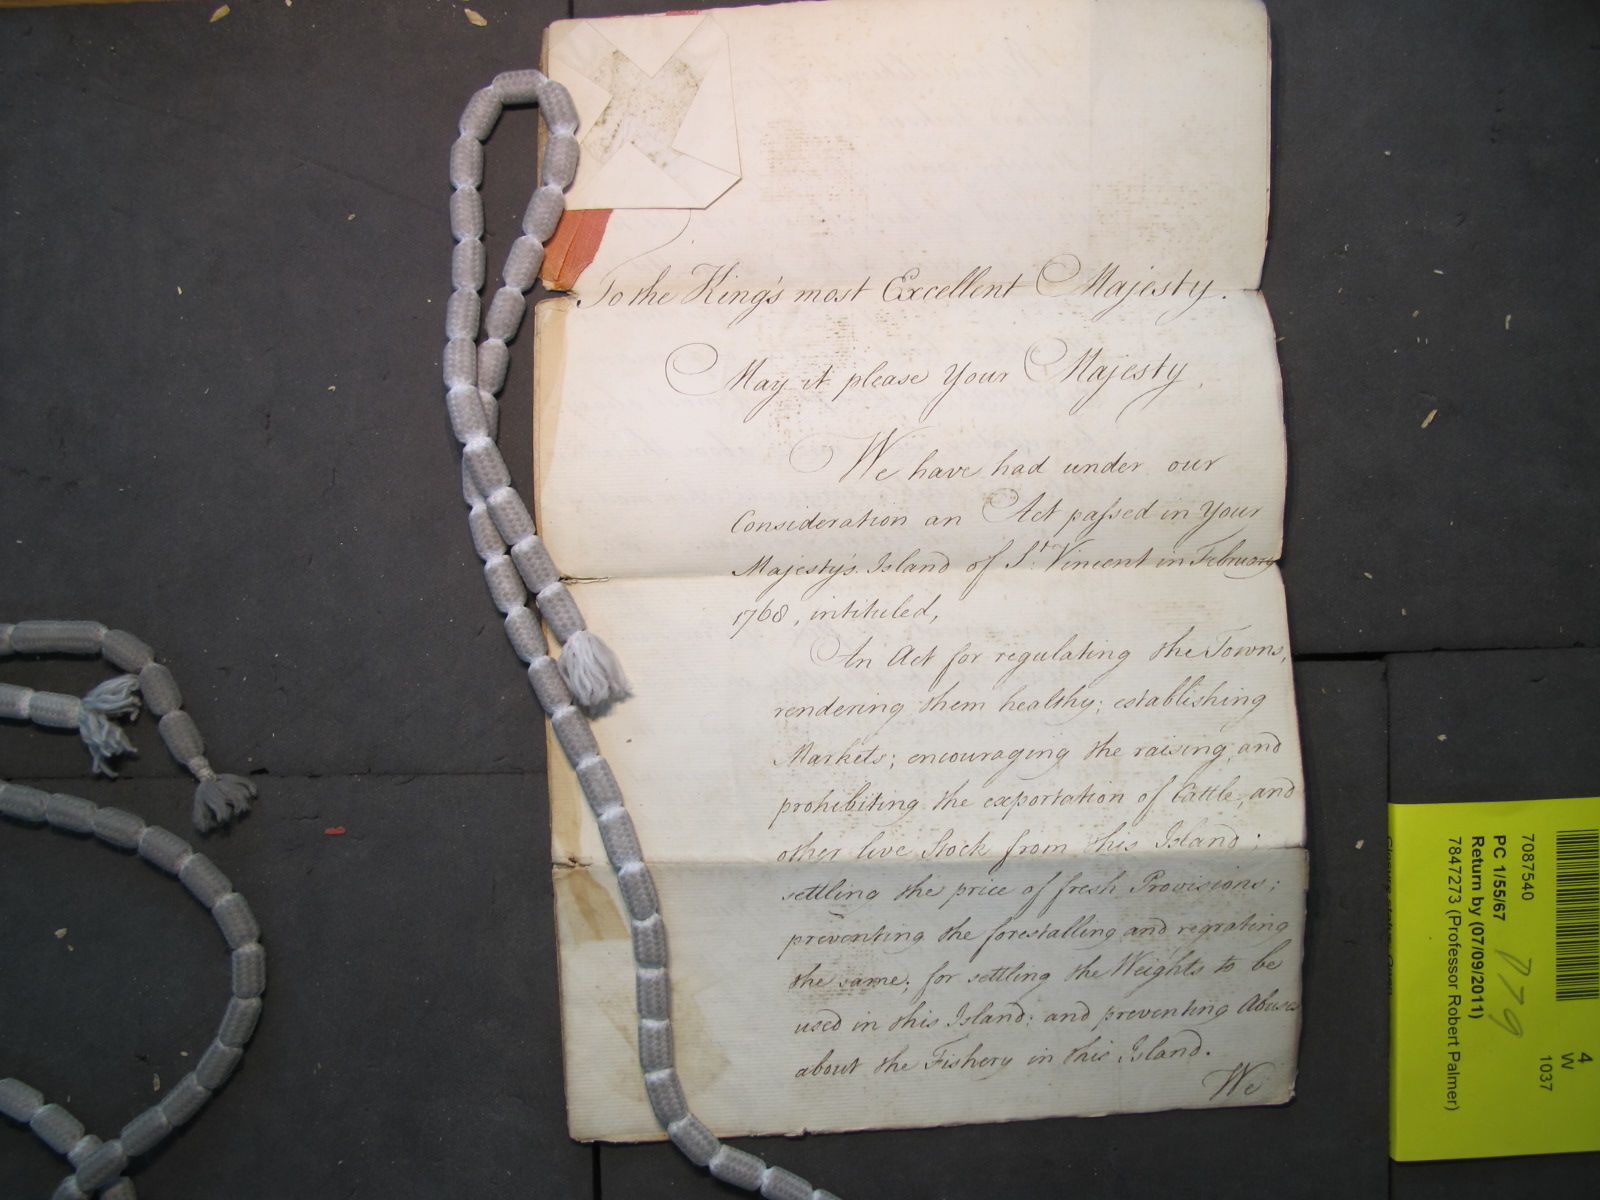 To the King's most Excellent Majesty.
May it please Your Majesty.
We have had under our
Consideration an Act passed in Your
Majesty's Island of St. Vincent in February
1768, intituled,
An Act for regulating the Towns,
rendering them healthy; establishing
Markets; encouraging the raising, and
prohibiting the exportation of Cattle, and
other live Stock from this Island;
settling the price of fresh Provisions;
preventing the forestalling and regrating
the same; for settling the Weights to be
used in this Island; and preventing Abuses
about the Fishery in this Island.
We
4
W
1037
7087540
PC 1/55/67
Return by (07/09/2011)
7847273 (Professor Robert Palmer)
779